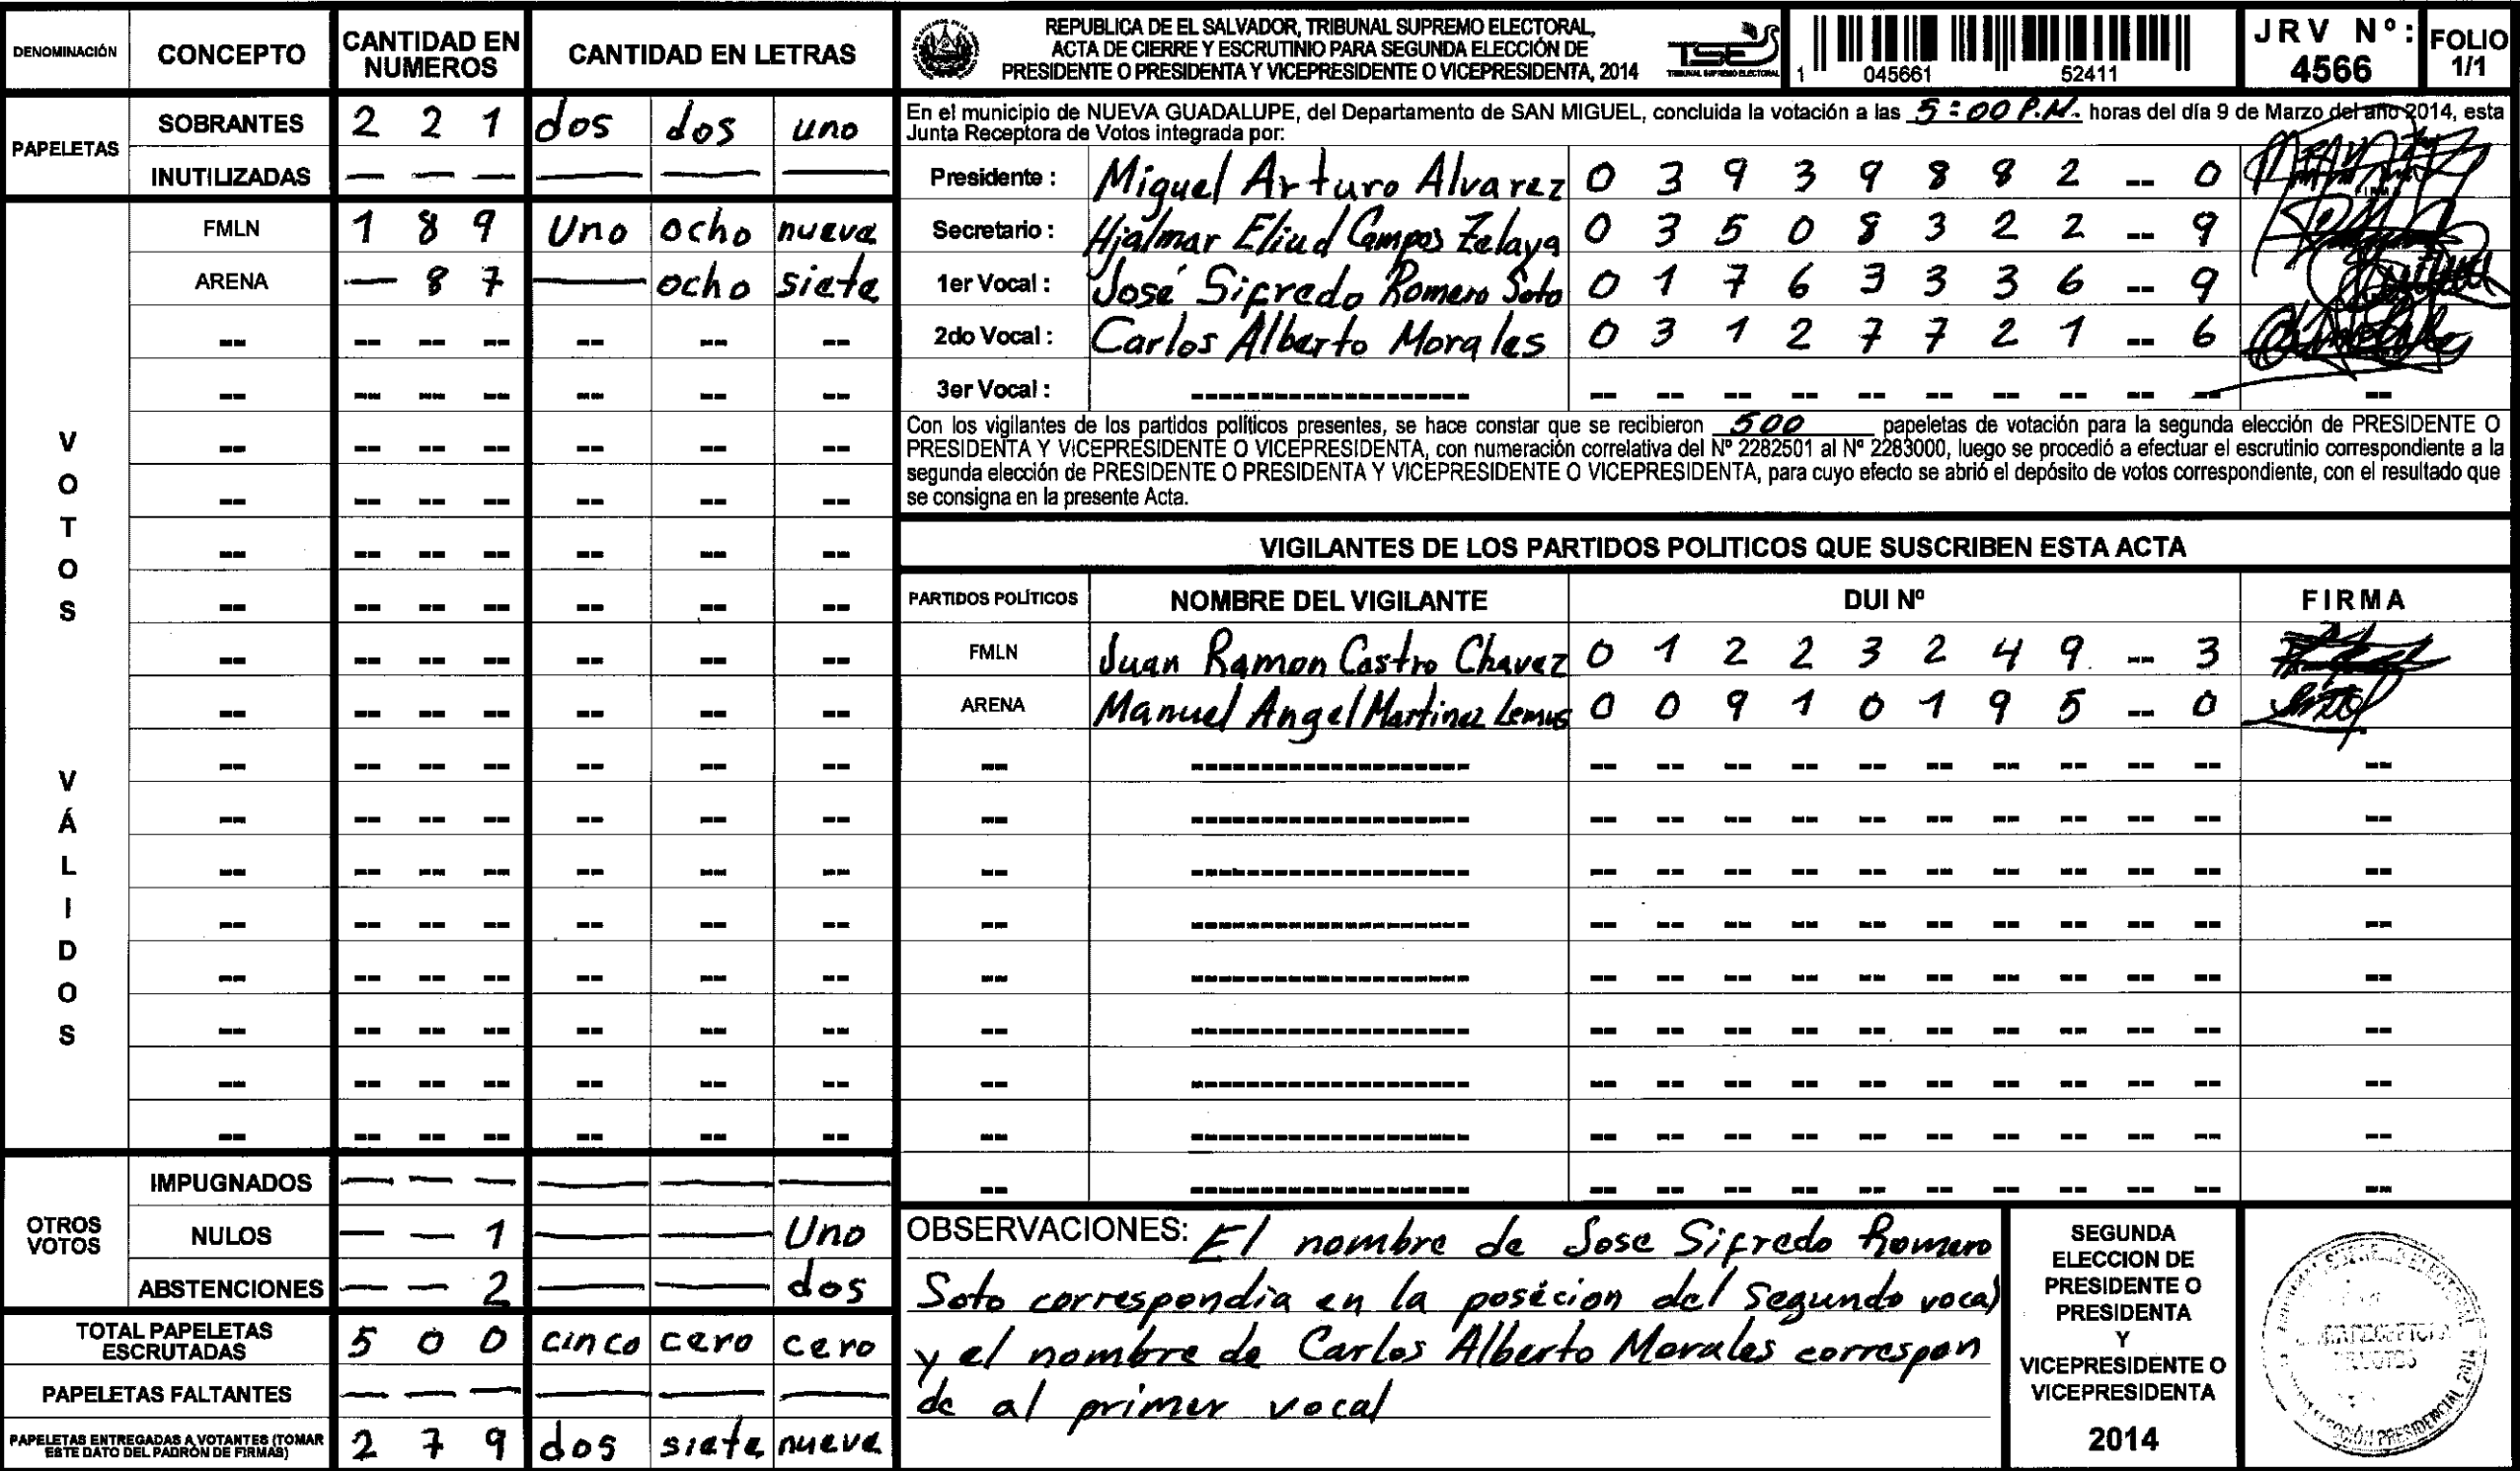 DENOMINACIÓN CONCEPTO CANTIDAD EN NUMEROS CANTIDAD EN LETRAS
PAPELETAS
SOBRANTES 2 2 1 dos dos uno
INUTILIZADAS — — — — — —
VOTOS VÁLIDOS
FMLN 1 8 9 Uno ocho nueve
ARENA — 8 7 — ocho siete
OTROS VOTOS
IMPUGNADOS — — — — — —
NULOS — — 1 — — Uno
ABSTENCIONES — — 2 — — dos
TOTAL PAPELETAS ESCRUTADAS 5 0 0 cinco cero cero
PAPELETAS FALTANTES — — — — — —
PAPELETAS ENTREGADAS A VOTANTES (TOMAR ESTE DATO DEL PADRÓN DE FIRMAS) 2 7 9 dos siete nueve
REPUBLICA DE EL SALVADOR, TRIBUNAL SUPREMO ELECTORAL,
ACTA DE CIERRE Y ESCRUTINIO PARA SEGUNDA ELECCIÓN DE
PRESIDENTE O PRESIDENTA Y VICEPRESIDENTE O VICEPRESIDENTA, 2014
TSE
TRIBUNAL SUPREMO ELECTORAL
1 045661 52411
JRV Nº: 4566
FOLIO 1/1
En el municipio de NUEVA GUADALUPE, del Departamento de SAN MIGUEL, concluida la votación a las 5:00 P.M. horas del día 9 de Marzo del año 2014, esta
Junta Receptora de Votos integrada por:
Presidente : Miguel Arturo Alvarez 0 3 9 3 9 8 8 2 -- 0
Secretario : Hjalmar Eliud Campos Zelaya 0 3 5 0 8 3 2 2 -- 9
1er Vocal : José Sifredo Romero Soto 0 1 7 6 3 3 3 6 -- 9
2do Vocal : Carlos Alberto Morales 0 3 1 2 7 7 2 1 -- 6
3er Vocal :
Con los vigilantes de los partidos políticos presentes, se hace constar que se recibieron 500 papeletas de votación para la segunda elección de PRESIDENTE O
PRESIDENTA Y VICEPRESIDENTE O VICEPRESIDENTA, con numeración correlativa del Nº 2282501 al Nº 2283000, luego se procedió a efectuar el escrutinio correspondiente a la
segunda elección de PRESIDENTE O PRESIDENTA Y VICEPRESIDENTE O VICEPRESIDENTA, para cuyo efecto se abrió el depósito de votos correspondiente, con el resultado que
se consigna en la presente Acta.
VIGILANTES DE LOS PARTIDOS POLITICOS QUE SUSCRIBEN ESTA ACTA
PARTIDOS POLÍTICOS NOMBRE DEL VIGILANTE DUI Nº FIRMA
FMLN Juan Ramon Castro Chavez 0 1 2 2 3 2 4 9 -- 3
ARENA Manuel Angel Martinez Lemus 0 0 9 1 0 1 9 5 -- 0
OBSERVACIONES: El nombre de Jose Sifredo Romero
Soto correspondia en la posicion del segundo vocal
y el nombre de Carlos Alberto Morales correspon
de al primer vocal
SEGUNDA
ELECCION DE
PRESIDENTE O
PRESIDENTA
Y
VICEPRESIDENTE O
VICEPRESIDENTA
2014